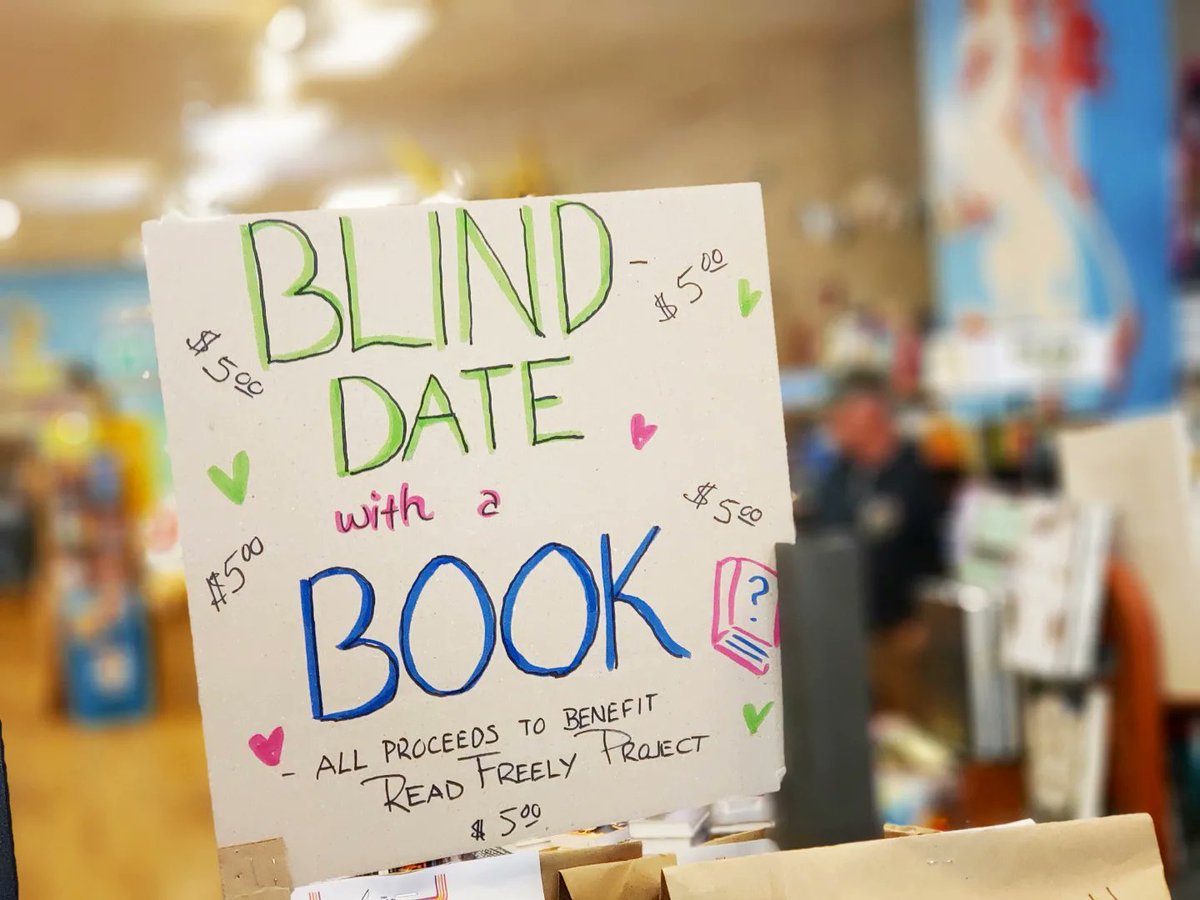 BLIND -
$5.00
$5.00
DATE
with a
$5.00
$5.00
BOOK
?
- ALL PROCEEDS TO BENEFIT
READ FREELY PROJECT
$5.00